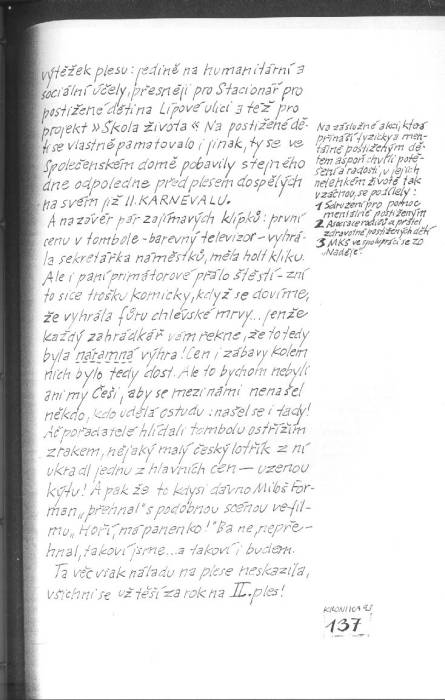 výtěžek plesu: jedině na humanitární a
sociální účely, přesněji pro Stacionář pro
postižené děti na Lípové ulici a též pro
projekt »Škola života« Na postižené dě-
ti se vlastně pamatovalo i jinak, ty se ve
Společenském domě pobavily stejného
dne odpoledne před plesem dospělých
na svém již II. KARNEVALU.
A na závěr pár zajímavých klípků: první
cenu v tombole - barevný televizor - vyhrá-
la sekretářka náměstků, měla holt kliku.
Ale i paní primátorové přálo štěstí - zní
to sice trošku komicky, když se dovíme,
že vyhrála fůru chlévské mrvy... jenže
každý zahrádkář vám řekne, že to tedy
byla náramná výhra! Cen i zábavy kolem
nich bylo tedy dost. Ale to bychom nebyli
ani my Češi, aby se mezi námi nenašel
někdo, kdo udělá ostudu: našel se i tady!
Ač pořadatelé hlídali tombolu ostřížím
zrakem, nějaký malý český lotřík z ní
ukradl jednu z hlavních cen — uzenou
kýtu! A pak že to kdysi dávno Miloš For-
man „přehnal" s podobnou scénou ve fil-
mu „Hoří, má panenko!" Ba ne, nepře-
hnal, takoví jsme... a takoví i budem.
Ta věc však náladu na plese neskazila,
všichni se už těší za rok na II. ples!
Na záslužné akci, která
přináší fyzicky a men-
tálně postiženým dě-
tem aspoň chvíli potě-
šení a radosti, v jejich
nelehkém životě tak
vzácnou, se podílely:
1 Sdružení pro pomoc
mentálně postiženým
2 Asociace rodičů a přátel
zdravotně postižených dětí
3 MKS ve spolupráci se ZO
„Naděje".
KRONIKA 93
137